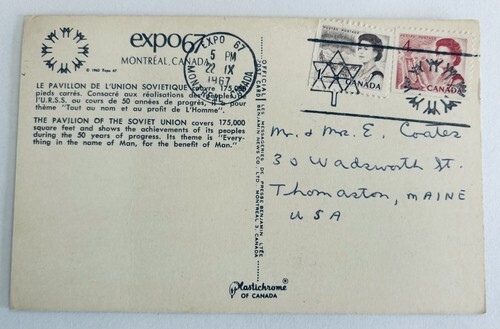 expo67
MONTRÉAL, CANADA
© 1963 Expo 67
LE PAVILLON DE L'UNION SOVIETIQUE couvre 175,000
pieds carrés. Consacré aux réalisations des peuples de
l'U.R.S.S. au cours de 50 années de progrès, il a pour
thème "Tout au nom et au profit de L'Homme".
THE PAVILION OF THE SOVIET UNION covers 175,000
square feet and shows the achievements of its peoples
during the 50 years of progress. Its theme is "Every-
thing in the name of Man, for the benefit of Man."
EXPO 67
5 PM
22 IX
1967
MONTREAL CANADA
OFFICIAL POST CARD
LES MESSAGERIES DE PRESSE BENJAMIN LTÉE
BENJAMIN NEWS CO. LTD. MONTREAL 3, CANADA
Plastichrome®
OF CANADA
POSTES POSTAGE
1
CANADA
POSTES POSTAGE
4
CANADA
Mr. & Mrs. E. Coates
30 Wadsworth St.
Thomaston, MAINE
USA